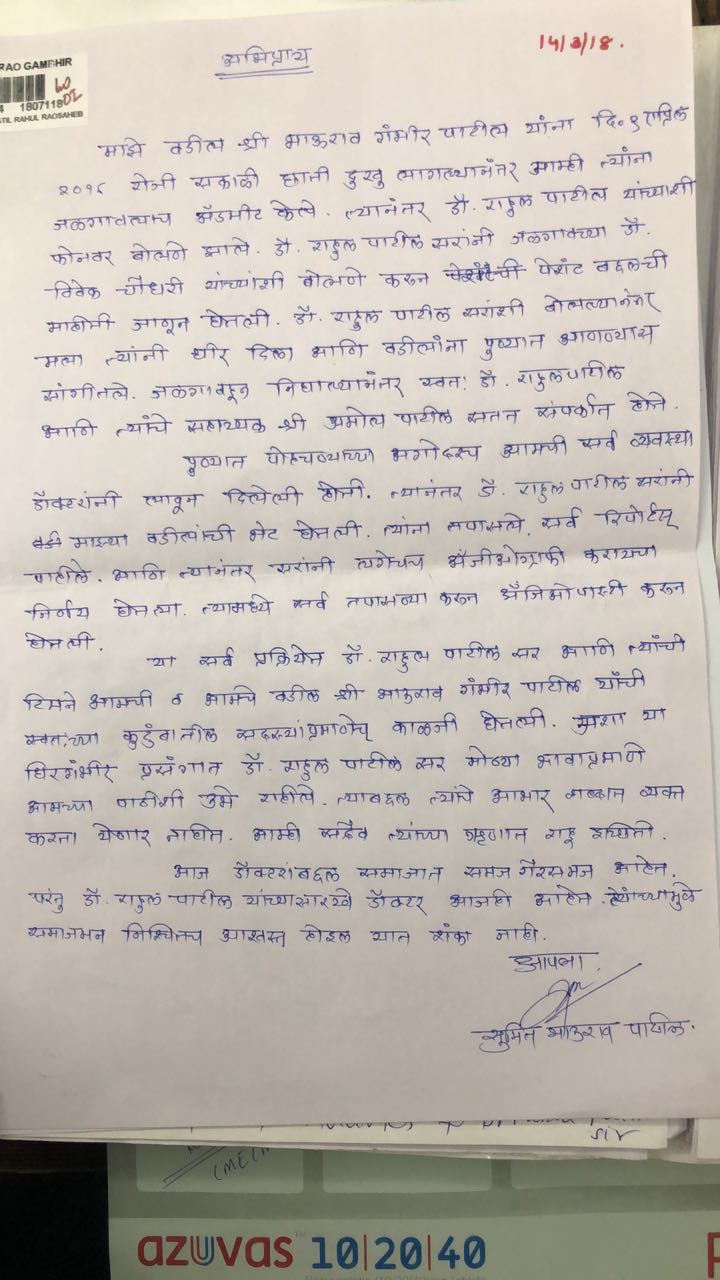 अभिप्राय
14/3/18.
RAO GAMBHIR
60
02
4 1807118
ATIL RAHUL RAOSAHEB
माझे वडील श्री भाऊराव गंभीर पाटील यांना दि. ९ एप्रिल
२०१८ रोजी सकाळी छाती दुखु लागल्यानंतर आम्ही त्यांना
जळगावलाच अ‍ॅडमीट केले. त्यानंतर डॉ. राहुल पाटील यांच्याशी
फोनवर बोलणे झाले. डॉ. राहुल पाटील सरांनी जळगावच्या डॉ.
विवेक चौधरी यांच्याशी बोलणे करुन पेशंट बद्दलची
माहीती जाणून घेतली. डॉ. राहुल पाटील सरांशी बोलल्यानंतर
मला त्यांनी धीर दिला आणि वडीलांना पुण्यात आणण्यास
सांगीतले. जळगावहून निघाल्यानंतर स्वतः डॉ. राहुल पाटील
आणि त्यांचे सहाय्यक श्री अमोल पाटील सतत संपर्कात होते.
पुण्यात पोहचण्याच्या अगोदरच आमची सर्व व्यवस्था
डॉक्टरांनी लावून दिलेली होती. त्यानंतर डॉ. राहुल पाटील सरांनी
माझ्या वडीलांची भेट घेतली. त्यांना तपासले, सर्व रिपोर्टस्
पाहीले. आणि त्यानंतर सरांनी लगेचच अँजीओग्राफी करायचा
निर्णय घेतला. त्यामध्ये सर्व तपासण्या करुन अँजिओप्लास्टी करुन
घेतली.
या सर्व प्रक्रियेत डॉ. राहुल पाटील सर आणि त्यांची
टिमने आमची व आमचे वडील श्री भाऊराव गंभीर पाटील यांची
स्वतःच्या कुटुंबातील सदस्यांप्रमाणेच काळजी घेतली. अशा या
धिरगंभीर प्रसंगात डॉ. राहुल पाटील सर मोठ्या भावाप्रमाणे
आमच्या पाठीशी उभे राहीले. त्याबद्दल त्यांचे आभार शब्दात व्यक्त
करता येणार नाहीत. आम्ही सदैव त्यांच्या ऋणात राहू इच्छितो.
आज डॉक्टरांबद्दल समाजात समज गैरसमज आहेत.
परंतु डॉ. राहुल पाटील यांच्यासारखे डॉक्टर आजही आहेत. त्यांच्यामुळे
समाजमन निश्चितच आश्वस्त होइल यात शंका नाही.
आपला.
सुमित भाऊराव पाटील.
sir
azuvas 10|20|40